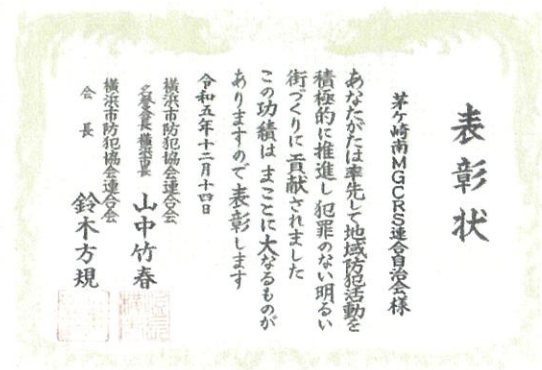 表彰状
茅ケ崎南MGCRS連合自治会様
あなたがたは率先して地域防犯活動を
積極的に推進し犯罪のない明るい
街づくりに貢献されました
この功績はまことに大なるものが
ありますので表彰します
令和五年十二月十四日
横浜市防犯協会連合会
名誉会長 横浜市長 山中竹春
横浜市防犯協会連合会
会長 鈴木方規